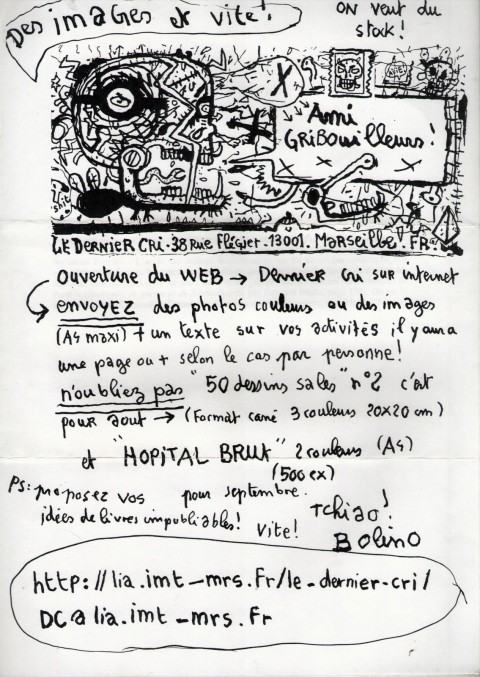 Des images et vite!
ON veut du
stock!
Ami
GRIBOUilleurs!
LE DERNIER CRi-38 Rue Flégier.13001. MARSEILLE. FR.
ouverture du WEB → Dernier Cri sur internet
ENVOYEZ des photos couleurs ou des images
(A4 maxi) + un texte sur vos activités il y aura
une page ou + selon le cas par personne!
n'oubliez pas "50 dessins sales" n°2 c'est
pour aout → (Format carré 3 couleurs 20x20 cm)
et "HOPITAL BRUT" 2 couleurs (A4)
(500 ex)
pour septembre.
PS: proposez vos
idées de livres impubliables!
Vite!
Tchiao!
Bolino
http://lia.imt-mrs.fr/le-dernier-cri/
DC@lia.imt-mrs.fr